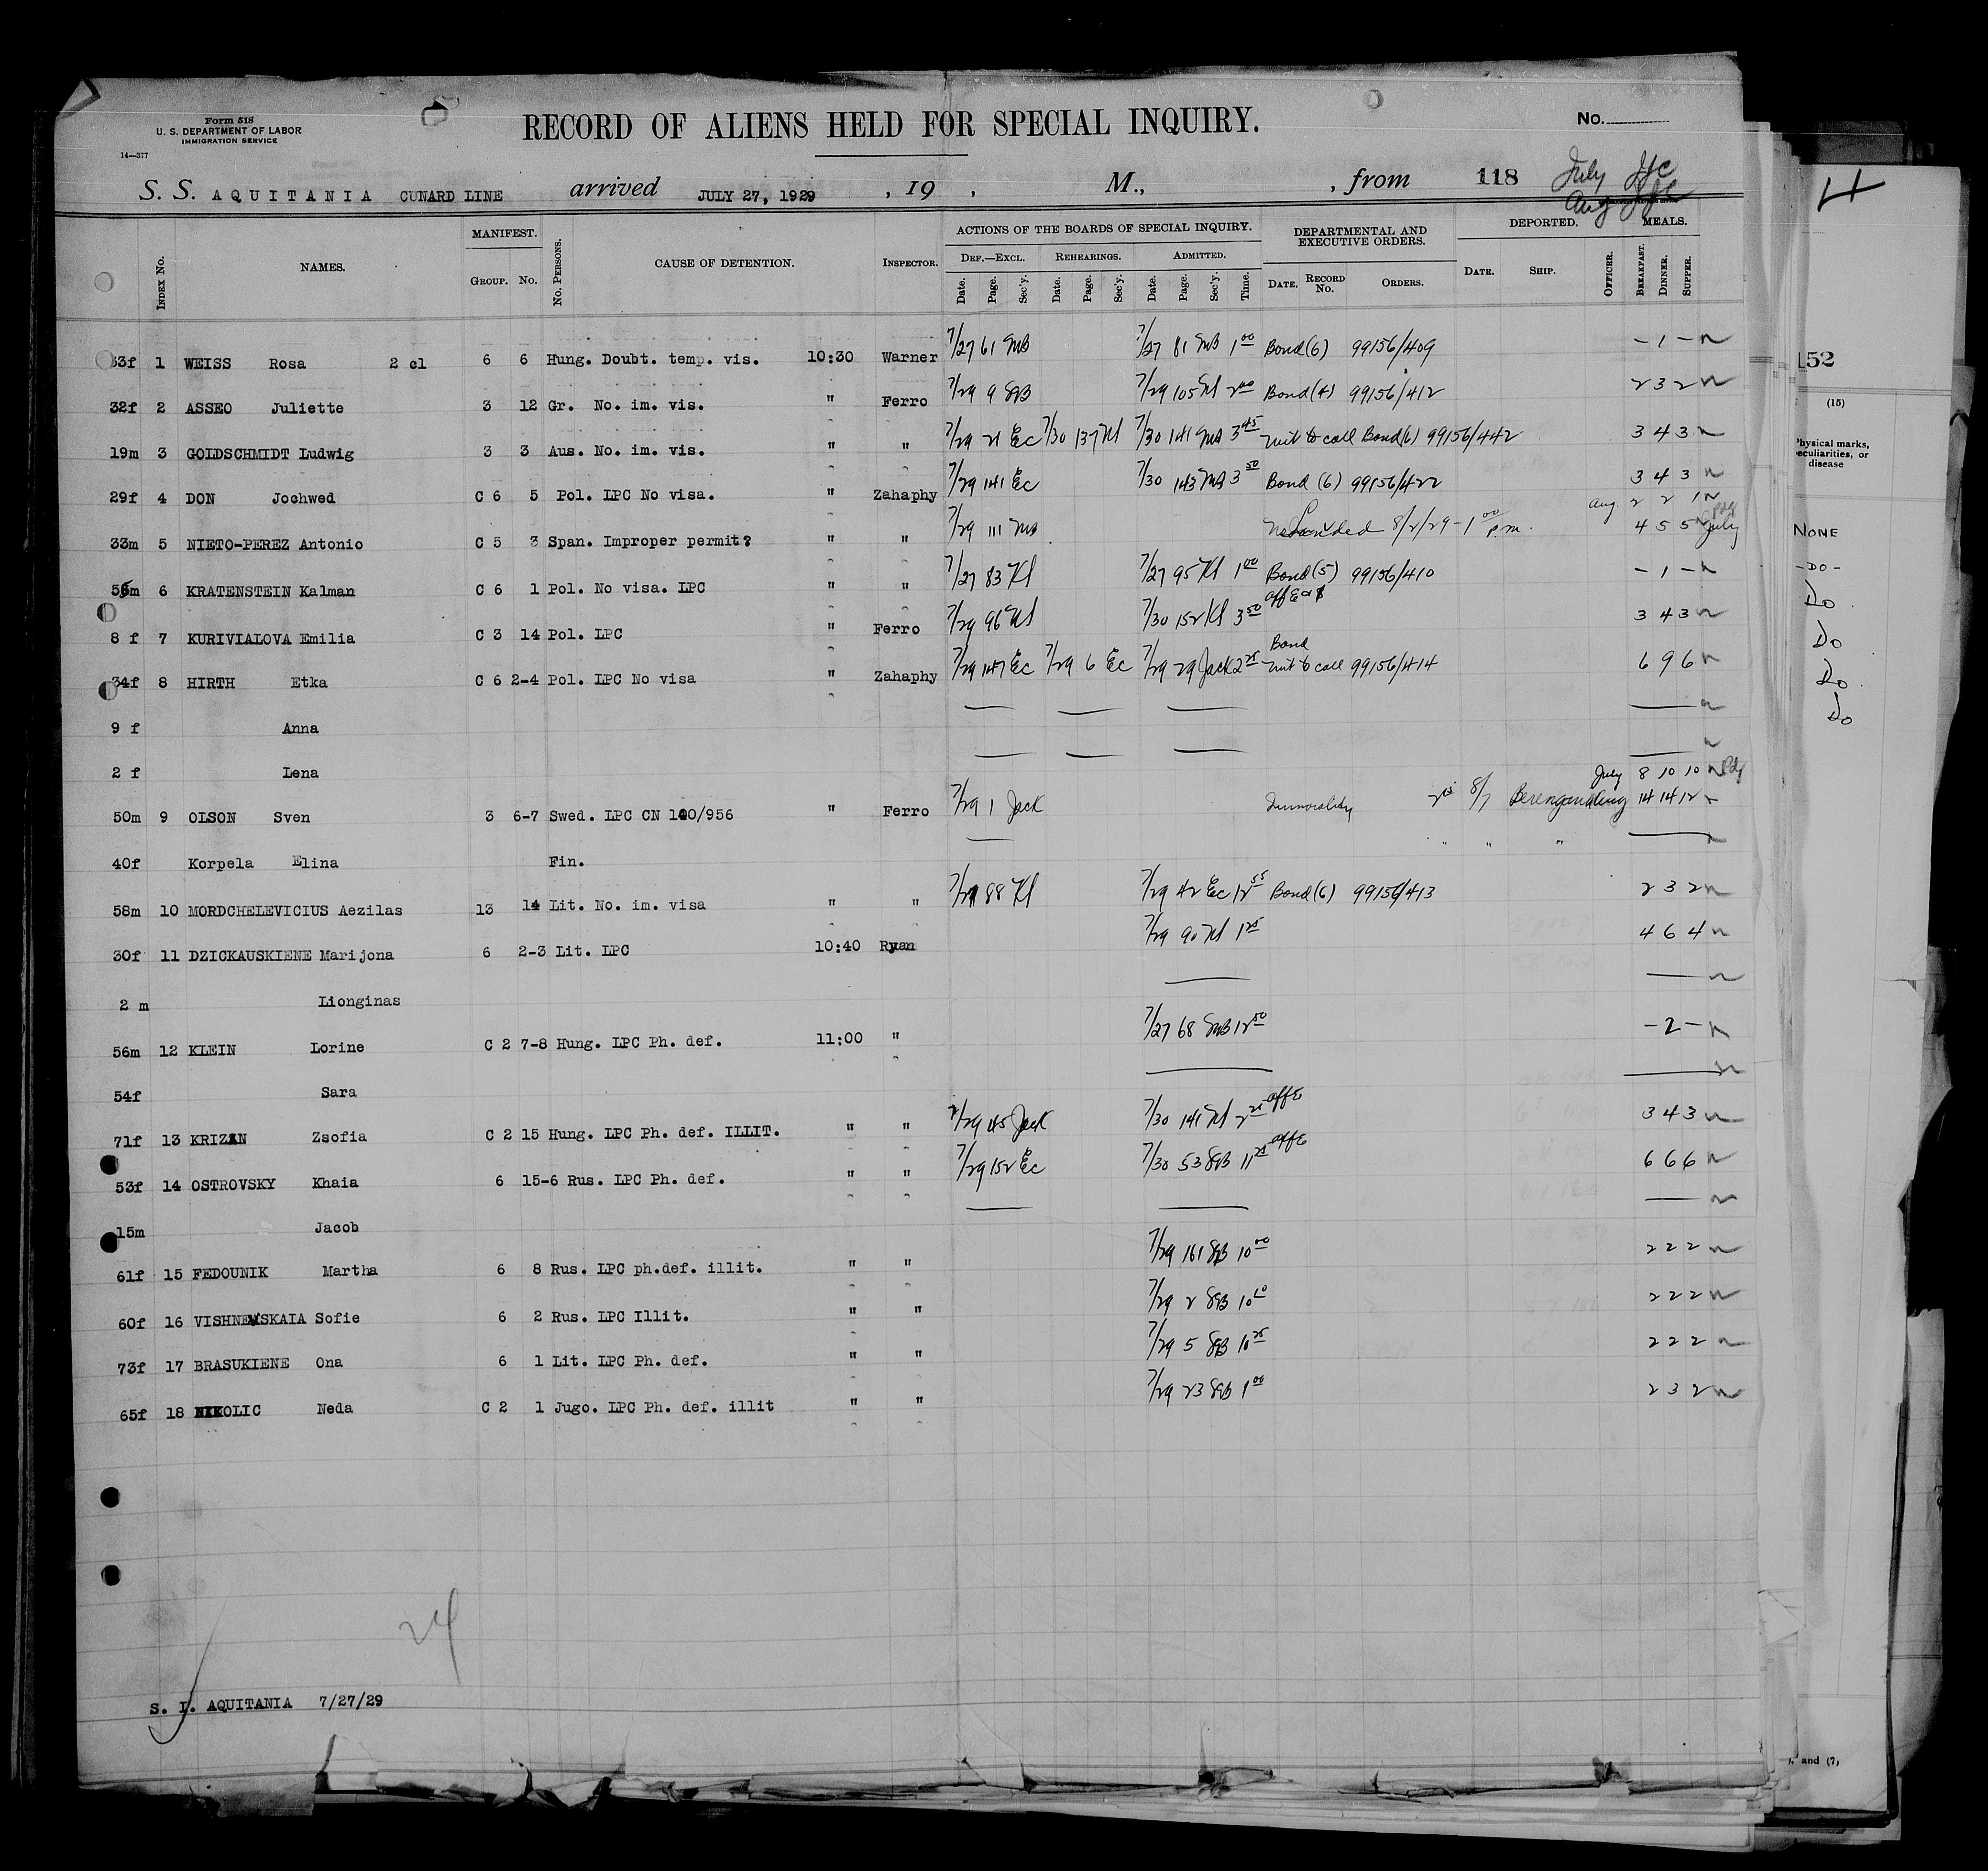 Form 518
U. S. DEPARTMENT OF LABOR
IMMIGRATION SERVICE
14—377
RECORD OF ALIENS HELD FOR SPECIAL INQUIRY.
No.
S. S. AQUITANIA CUNARD LINE arrived JULY 27, 1929 , 19 , M., , from 118 July
Aug
INDEX No. NAMES. MANIFEST. GROUP. No. No. PERSONS. CAUSE OF DETENTION. INSPECTOR. ACTIONS OF THE BOARDS OF SPECIAL INQUIRY. DEF.—EXCL. REHEARINGS. ADMITTED. DEPARTMENTAL AND EXECUTIVE ORDERS. DEPORTED. MEALS.
Date. Page. Sec'y. Date. Page. Sec'y. Date. Page. Sec'y. Time. DATE. RECORD No. ORDERS. DATE. SHIP. OFFICER. BREAKFAST. DINNER. SUPPER.
1 WEISS Rosa 2 cl 6 6 Hung. Doubt. temp. vis. 10:30 Warner 7/27 61 7/27 81 1 00 Bond (6) 99156/409 - 1 -
32f 2 ASSEO Juliette 3 12 Gr. No. im. vis. " Ferro 7/29 9 7/29 105 2 00 Bond (4) 99156/412 2 3 2
19m 3 GOLDSCHMIDT Ludwig 3 3 Aus. No. im. vis. " " 7/29 21 Ec 7/30 137 7/30 141 3 45 to call Bond (6) 99156/442 3 4 3
29f 4 DON Jochwed C 6 5 Pol. LPC No visa. " Zahaphy 7/29 141 Ec 7/30 143 3 50 Bond (6) 99156/422 3 4 3
Aug. 2 2 1
33m 5 NIETO-PEREZ Antonio C 5 3 Span. Improper permit? " " 7/29 111 8/2/29 - 1 00 p.m. 4 5 5 July
6 KRATENSTEIN Kalman C 6 1 Pol. No visa. LPC " " 7/27 83 7/27 95 1 00 Bond (5) 99156/410 - 1 -
8 f 7 KURIVIALOVA Emilia C 3 14 Pol. LPC " Ferro 7/29 96 7/30 152 3 50 3 4 3
34f 8 HIRTH Etka C 6 2-4 Pol. LPC No visa " Zahaphy 7/29 147 Ec 7/29 6 Ec 7/29 29 Jack 2 25 Bond to call 99156/414 6 9 6
9 f Anna
2 f Lena
July 8 10 10
50m 9 OLSON Sven 3 6-7 Swed. LPC CN 100/956 " Ferro 7/29 1 Jack Immorality 8/7 14 14 12
40f Korpela Elina Fin. " " "
58m 10 MORDCHELEVICIUS Aezilas 13 14 Lit. No. im. visa " " 7/29 88 7/29 42 Ec 12 55 Bond (6) 99156/413 2 3 2
30f 11 DZICKAUSKIENE Marijona 6 2-3 Lit. LPC 10:40 Ryan 7/29 90 1 25 4 6 4
2 m Lionginas
56m 12 KLEIN Lorine C 2 7-8 Hung. LPC Ph. def. 11:00 " 7/27 68 12 50 - 2 -
54f Sara
71f 13 KRIZAN Zsofia C 2 15 Hung. LPC Ph. def. ILLIT. " " 7/29 45 Jack 7/30 141 2 25 3 4 3
53f 14 OSTROVSKY Khaia 6 15-6 Rus. LPC Ph. def. " " 7/29 152 Ec 7/30 53 11 25 6 6 6
15m Jacob
61f 15 FEDOUNIK Martha 6 8 Rus. LPC ph.def. illit. " " 7/29 161 10 00 2 2 2
60f 16 VISHNEVSKAIA Sofie 6 2 Rus. LPC Illit. " " 7/29 2 10 10 2 2 2
73f 17 BRASUKIENE Ona 6 1 Lit. LPC Ph. def. " " 7/29 5 10 25 2 2 2
65f 18 NIKOLIC Neda C 2 1 Jugo. LPC Ph. def. illit " " 7/29 23 1 00 2 3 2
24
S. I. AQUITANIA 7/27/29
152
(15)
Physical marks,
peculiarities, or
disease
NONE
- DO -
Do
Do
Do
Do
and (7)